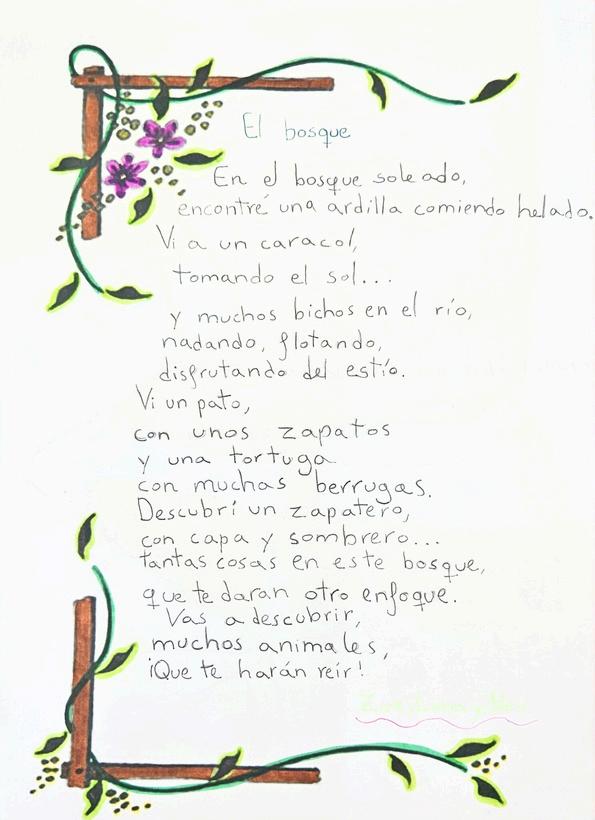 El bosque
En el bosque soleado,
encontré una ardilla comiendo helado.
Vi a un caracol,
tomando el sol...
y muchos bichos en el río,
nadando, flotando,
disfrutando del estío.
Vi un pato,
con unos zapatos
y una tortuga
con muchas berrugas.
Descubrí un zapatero,
con capa y sombrero...
tantas cosas en este bosque,
que te daran otro enfoque.
Vas a descubrir,
muchos animales,
¡Que te harán reír!